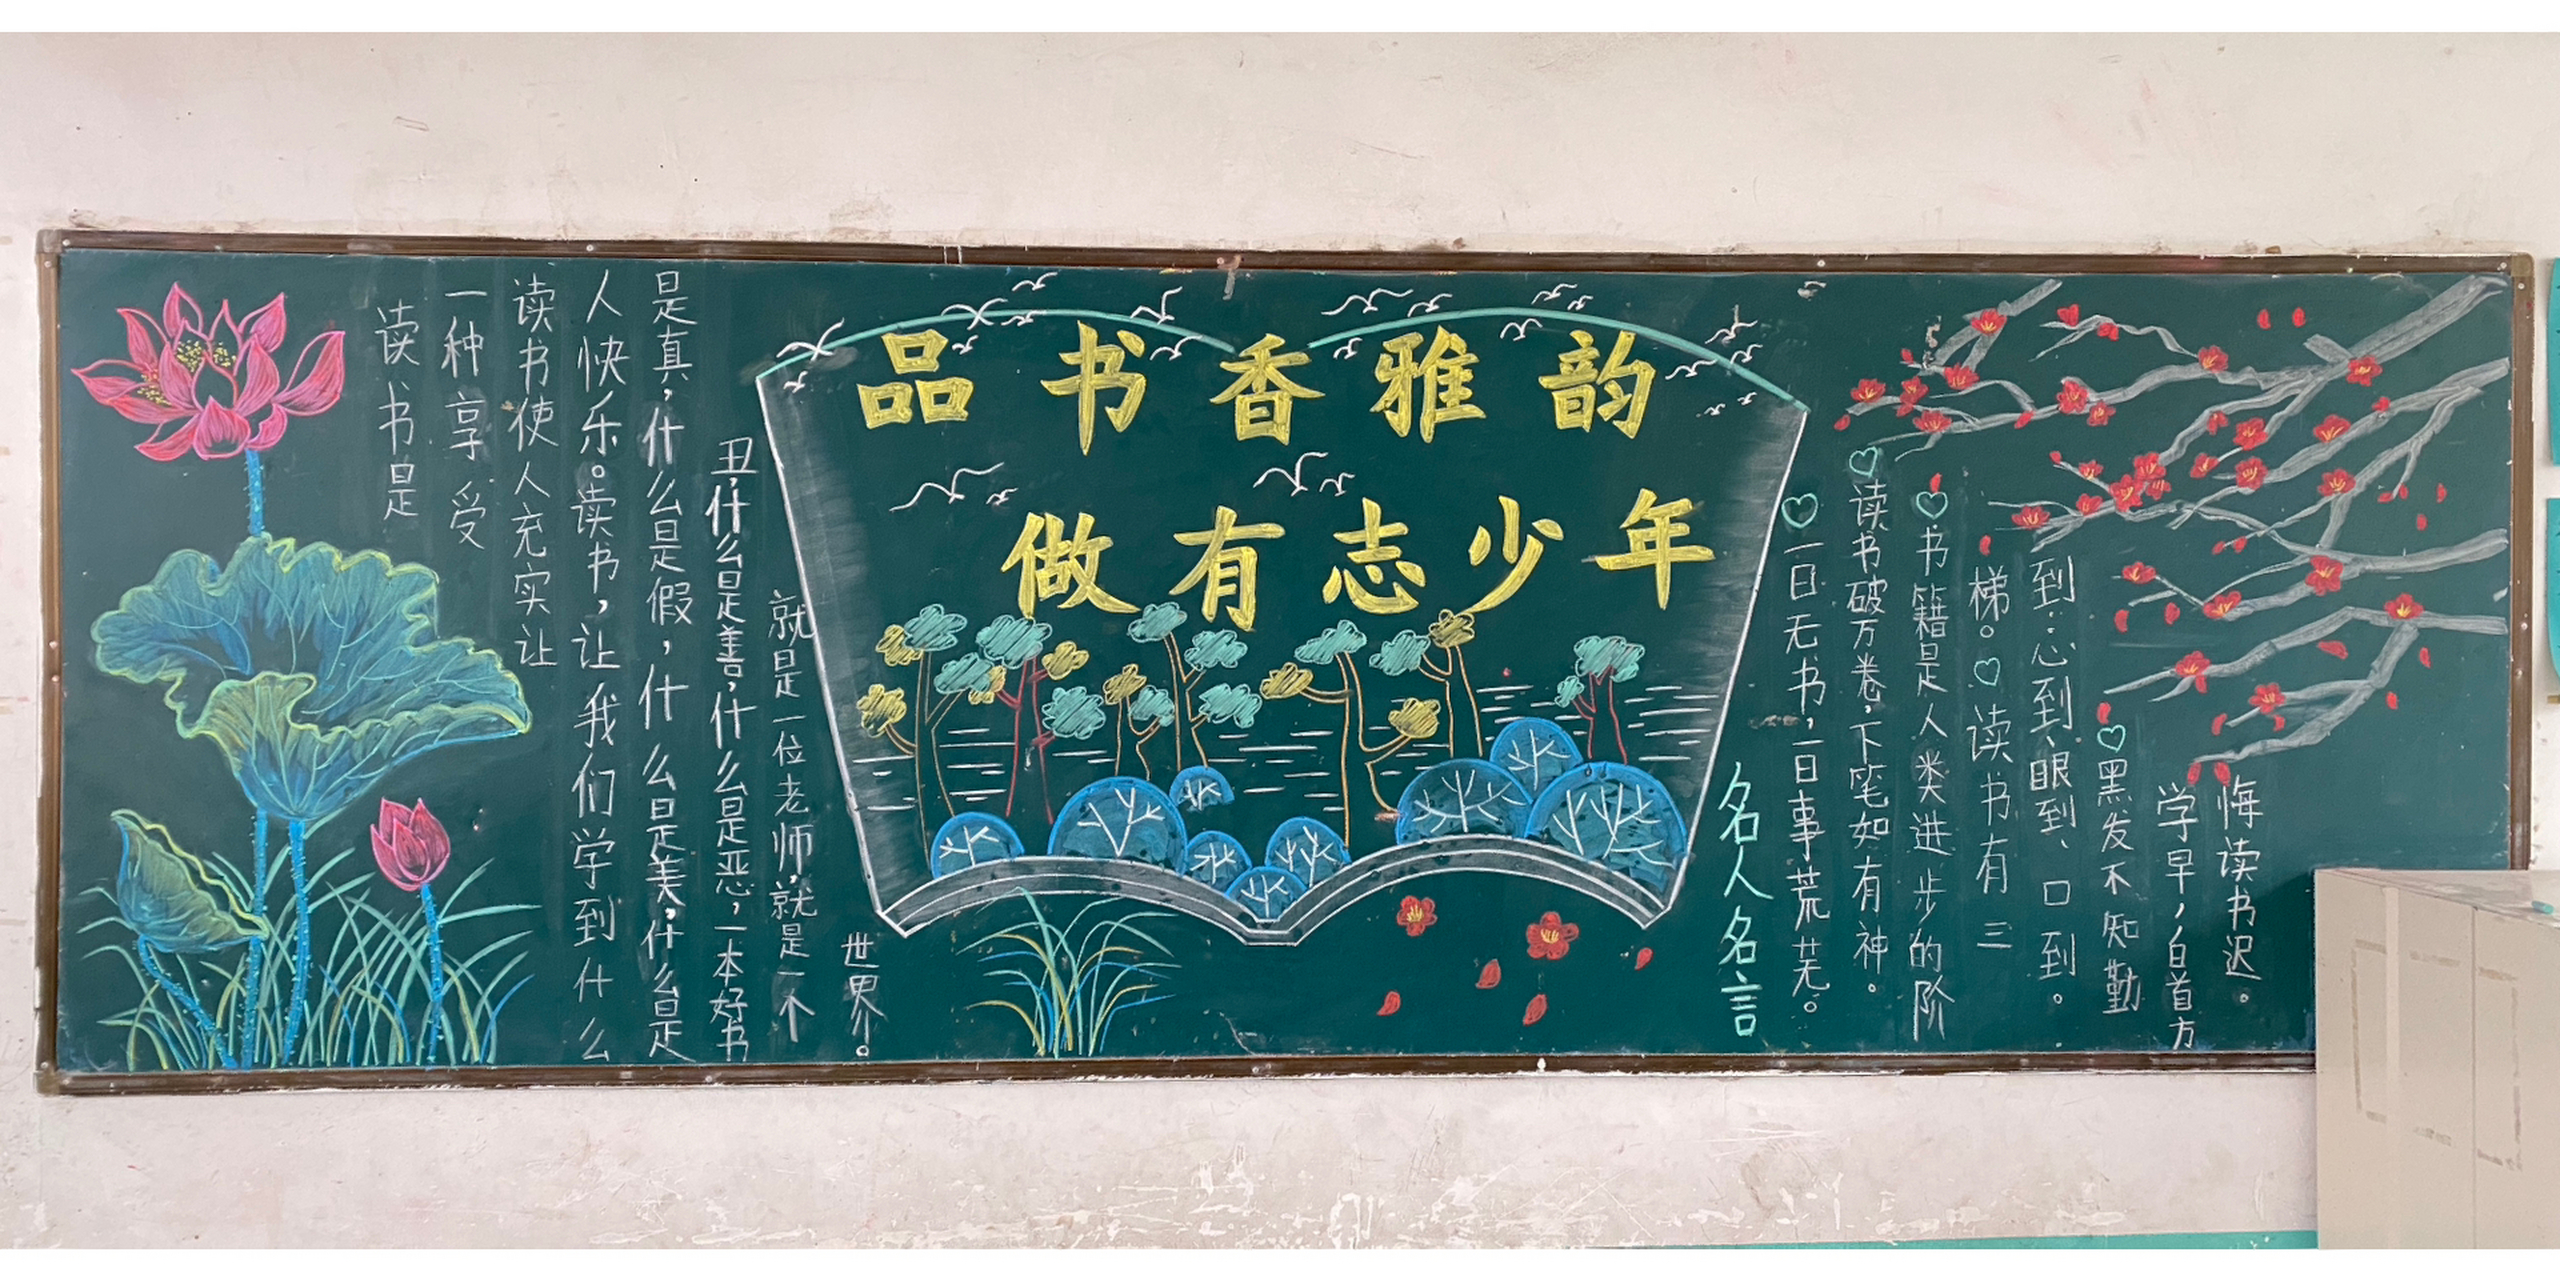 读书是
一种享受
读书使人充实让
人快乐。读书，让我们学到什么
是真，什么是假，什么是美，什么是
丑，什么是善，什么是恶，一本好书
就是一位老师，就是一个
世界。
品书香雅韵
做有志少年
名人名言
♡一日无书，一日事荒芜。
♡读书破万卷，下笔如有神。
♡书籍是人类进步的阶
梯。♡读书有三
到：心到、眼到、口到。
♡黑发不知勤
学早，白首方
悔读书迟。